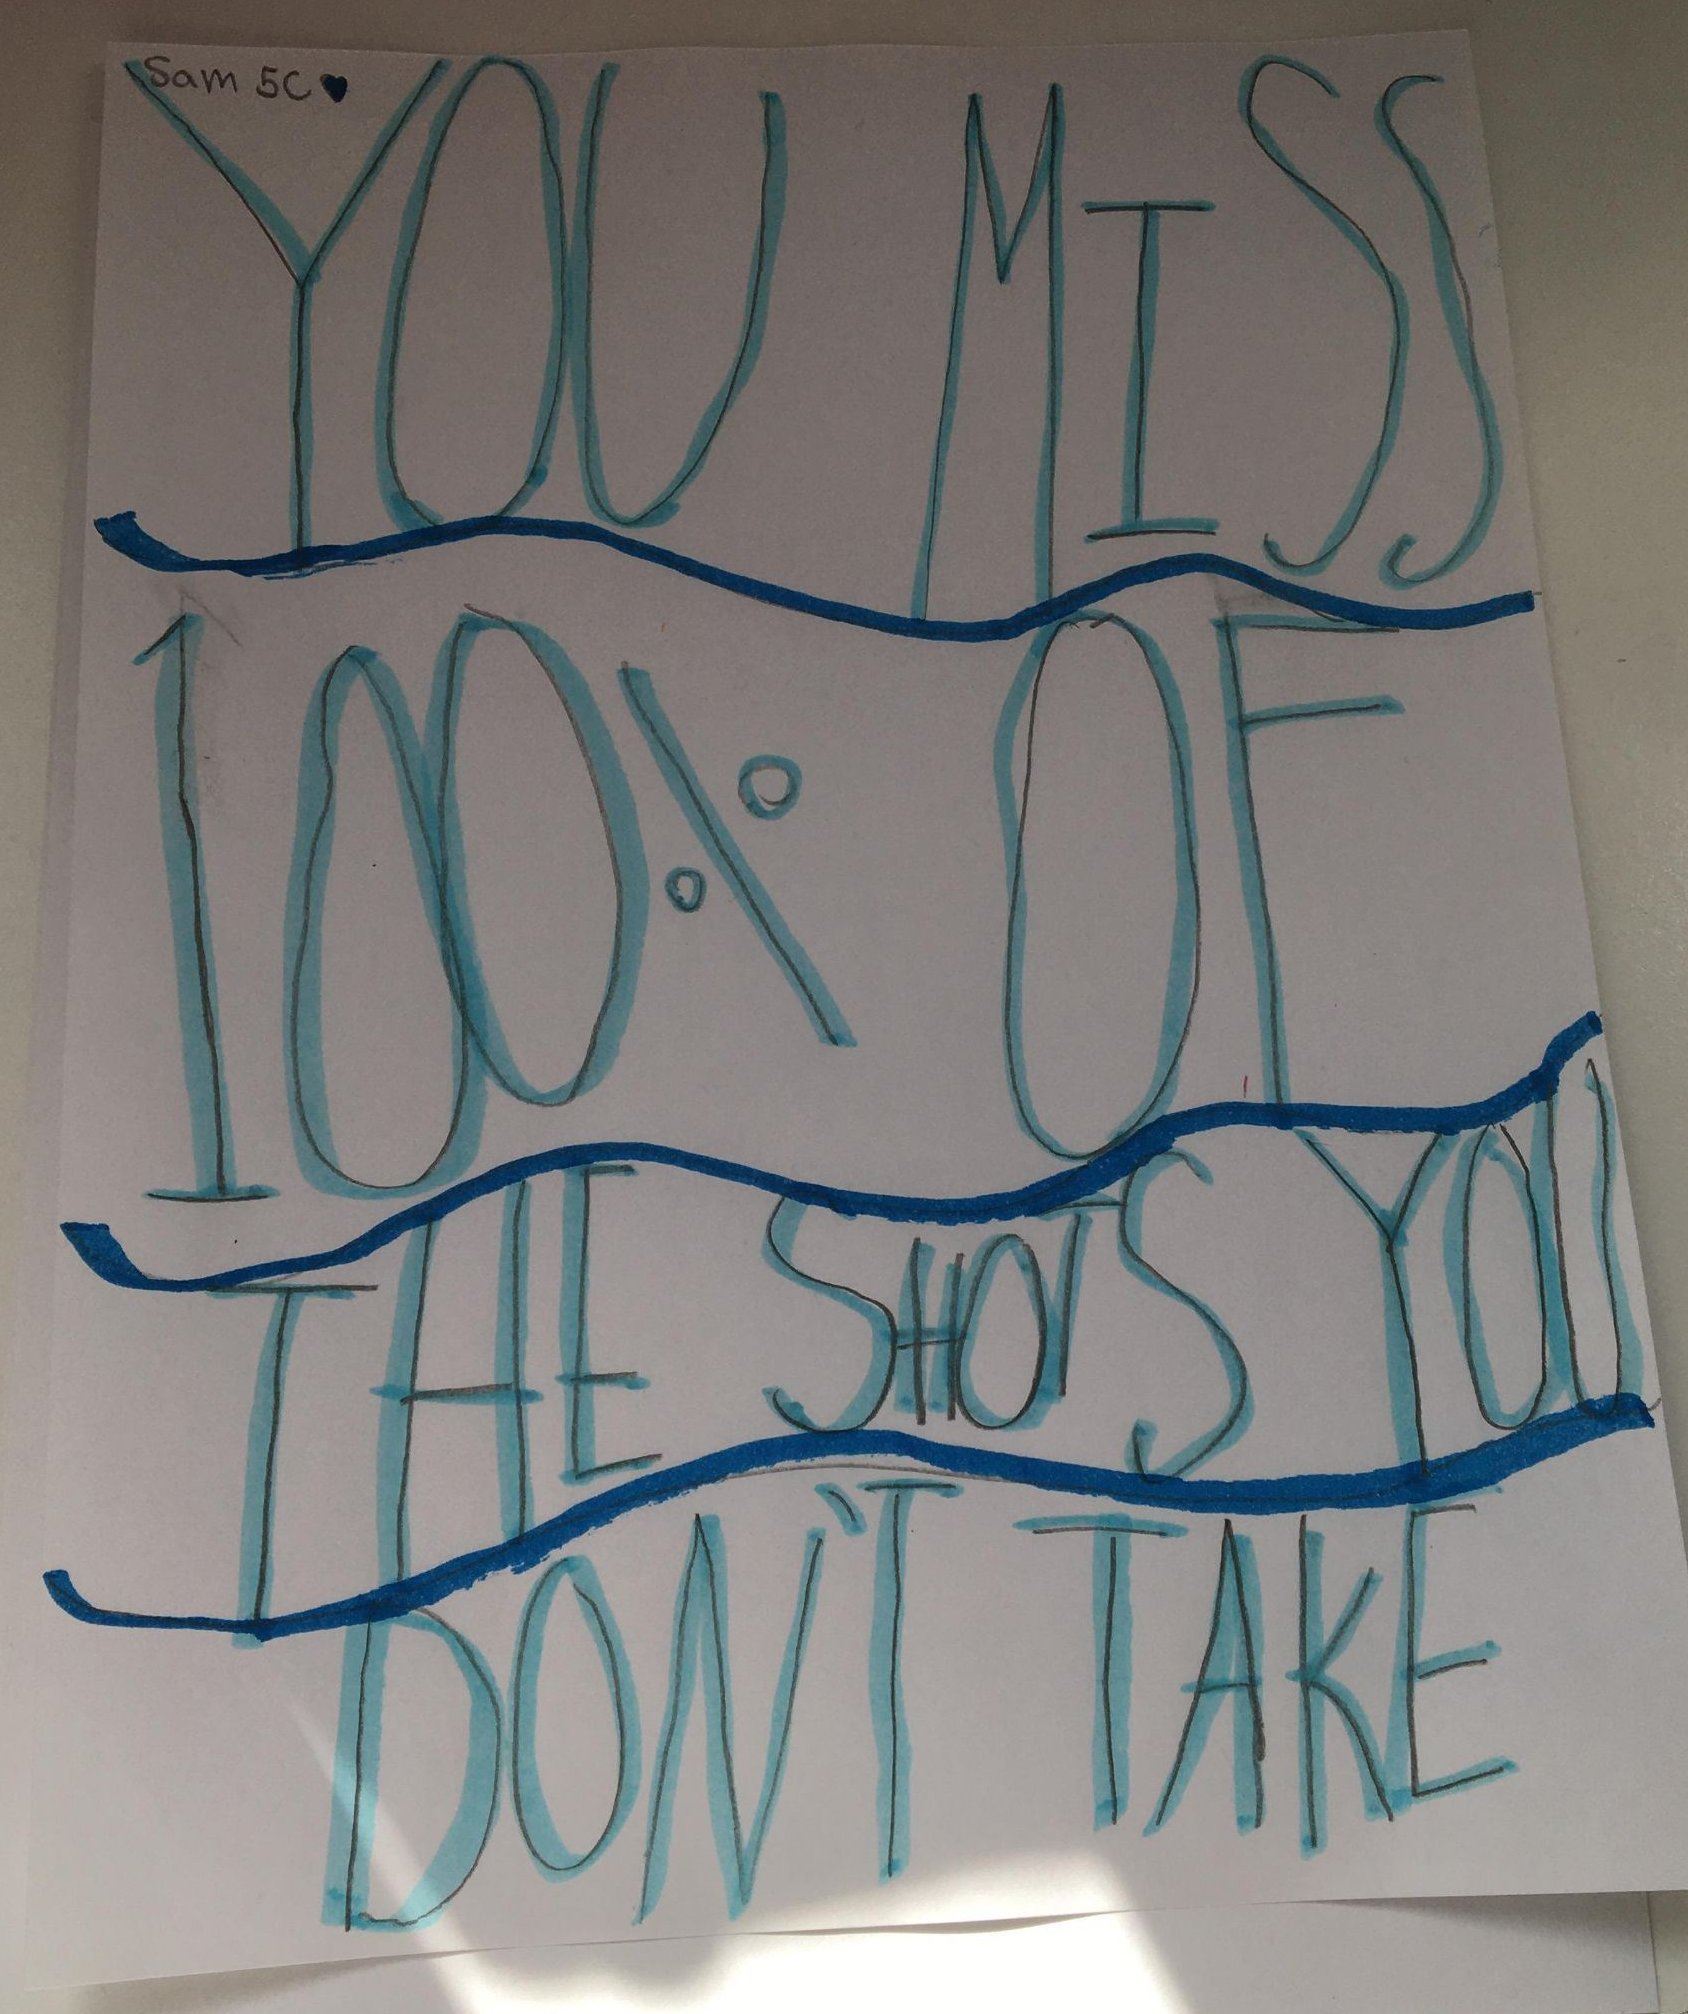 Sam 5C♥
YOU MISS
100% OF
THE SHOTS YOU
DON'T TAKE